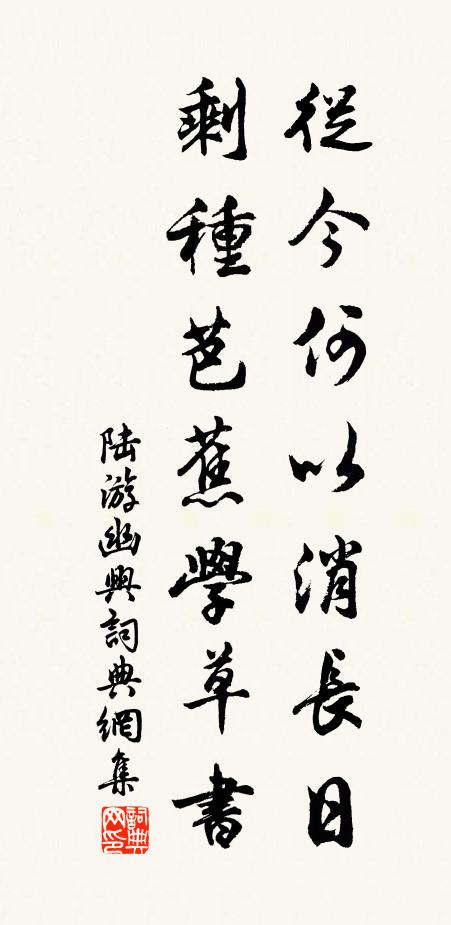 從今何以消長日
剩種芭蕉學草書
陸游幽興詞典網集
詞典网印